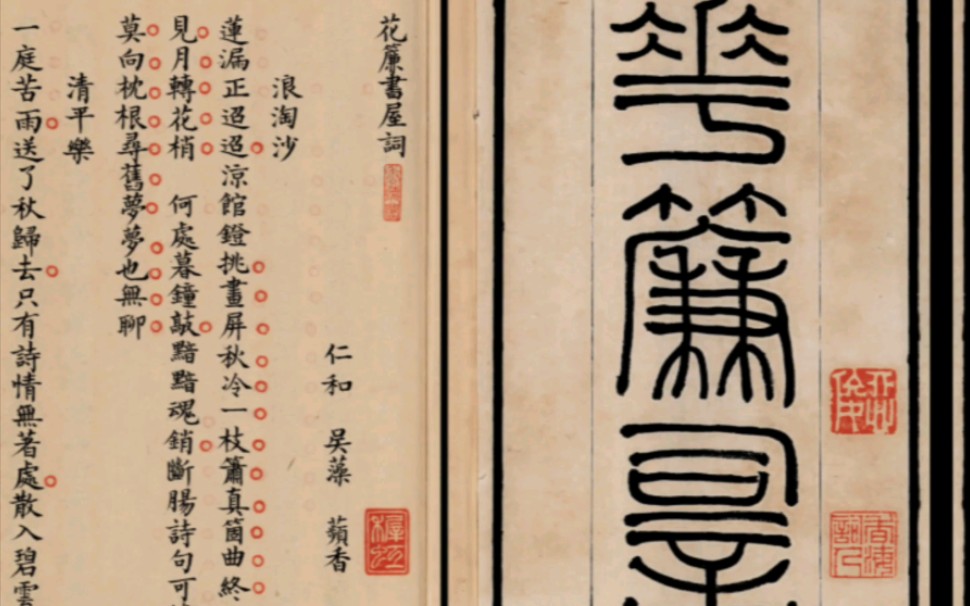 華簾
花簾書屋詞
仁和 吳藻 蘋香
浪淘沙
蓮漏正迢迢涼館鐙挑畫屏秋冷一枝簫真箇曲終
見月轉花梢 何處暮鐘敲黯黯魂銷斷腸詩句可
莫向枕根尋舊夢夢也無聊
清平樂
一庭苦雨送了秋歸去只有詩情無著處散入碧雲